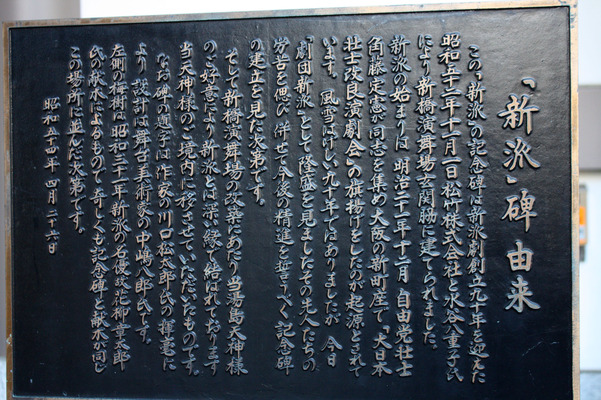 「新派」碑 由来
この「新派」の記念碑は新派劇創立九十年を迎えた
昭和五十二年十一月一日松竹株式会社と水谷八重子氏
により、新橋演舞場玄関脇に建てられました。
新派の始まりは、明治二十一年十二月、自由党壮士
角藤定憲が同志を集め大阪の新町座で「大日本
壮士改良演劇会」の旗揚げをしたのが起源とされて
います。風雪はげしい九十年ではありましたが、今日
「劇団新派」として隆盛を見ましたその先人たちの
労苦を偲び、併せて今後の精進を誓うべく記念碑
の建立を見た次第です。
そして、新橋演舞場の改築にあたり、当湯島天神様
の御好意により新派とは深い縁で結ばれております
当天神様のご境内に移させていただいたものです。
なお、碑の題字は作家の川口松太郎氏の揮毫に
より、設計は舞台美術家の中嶋八郎氏です。
左側の梅樹は、昭和三十一年新派の名優故花柳章太郎
氏の献木によるもので、奇しくも記念碑と献木が同じ
この場所に並んだ次第です。
昭和五十 年 四月 二十六日